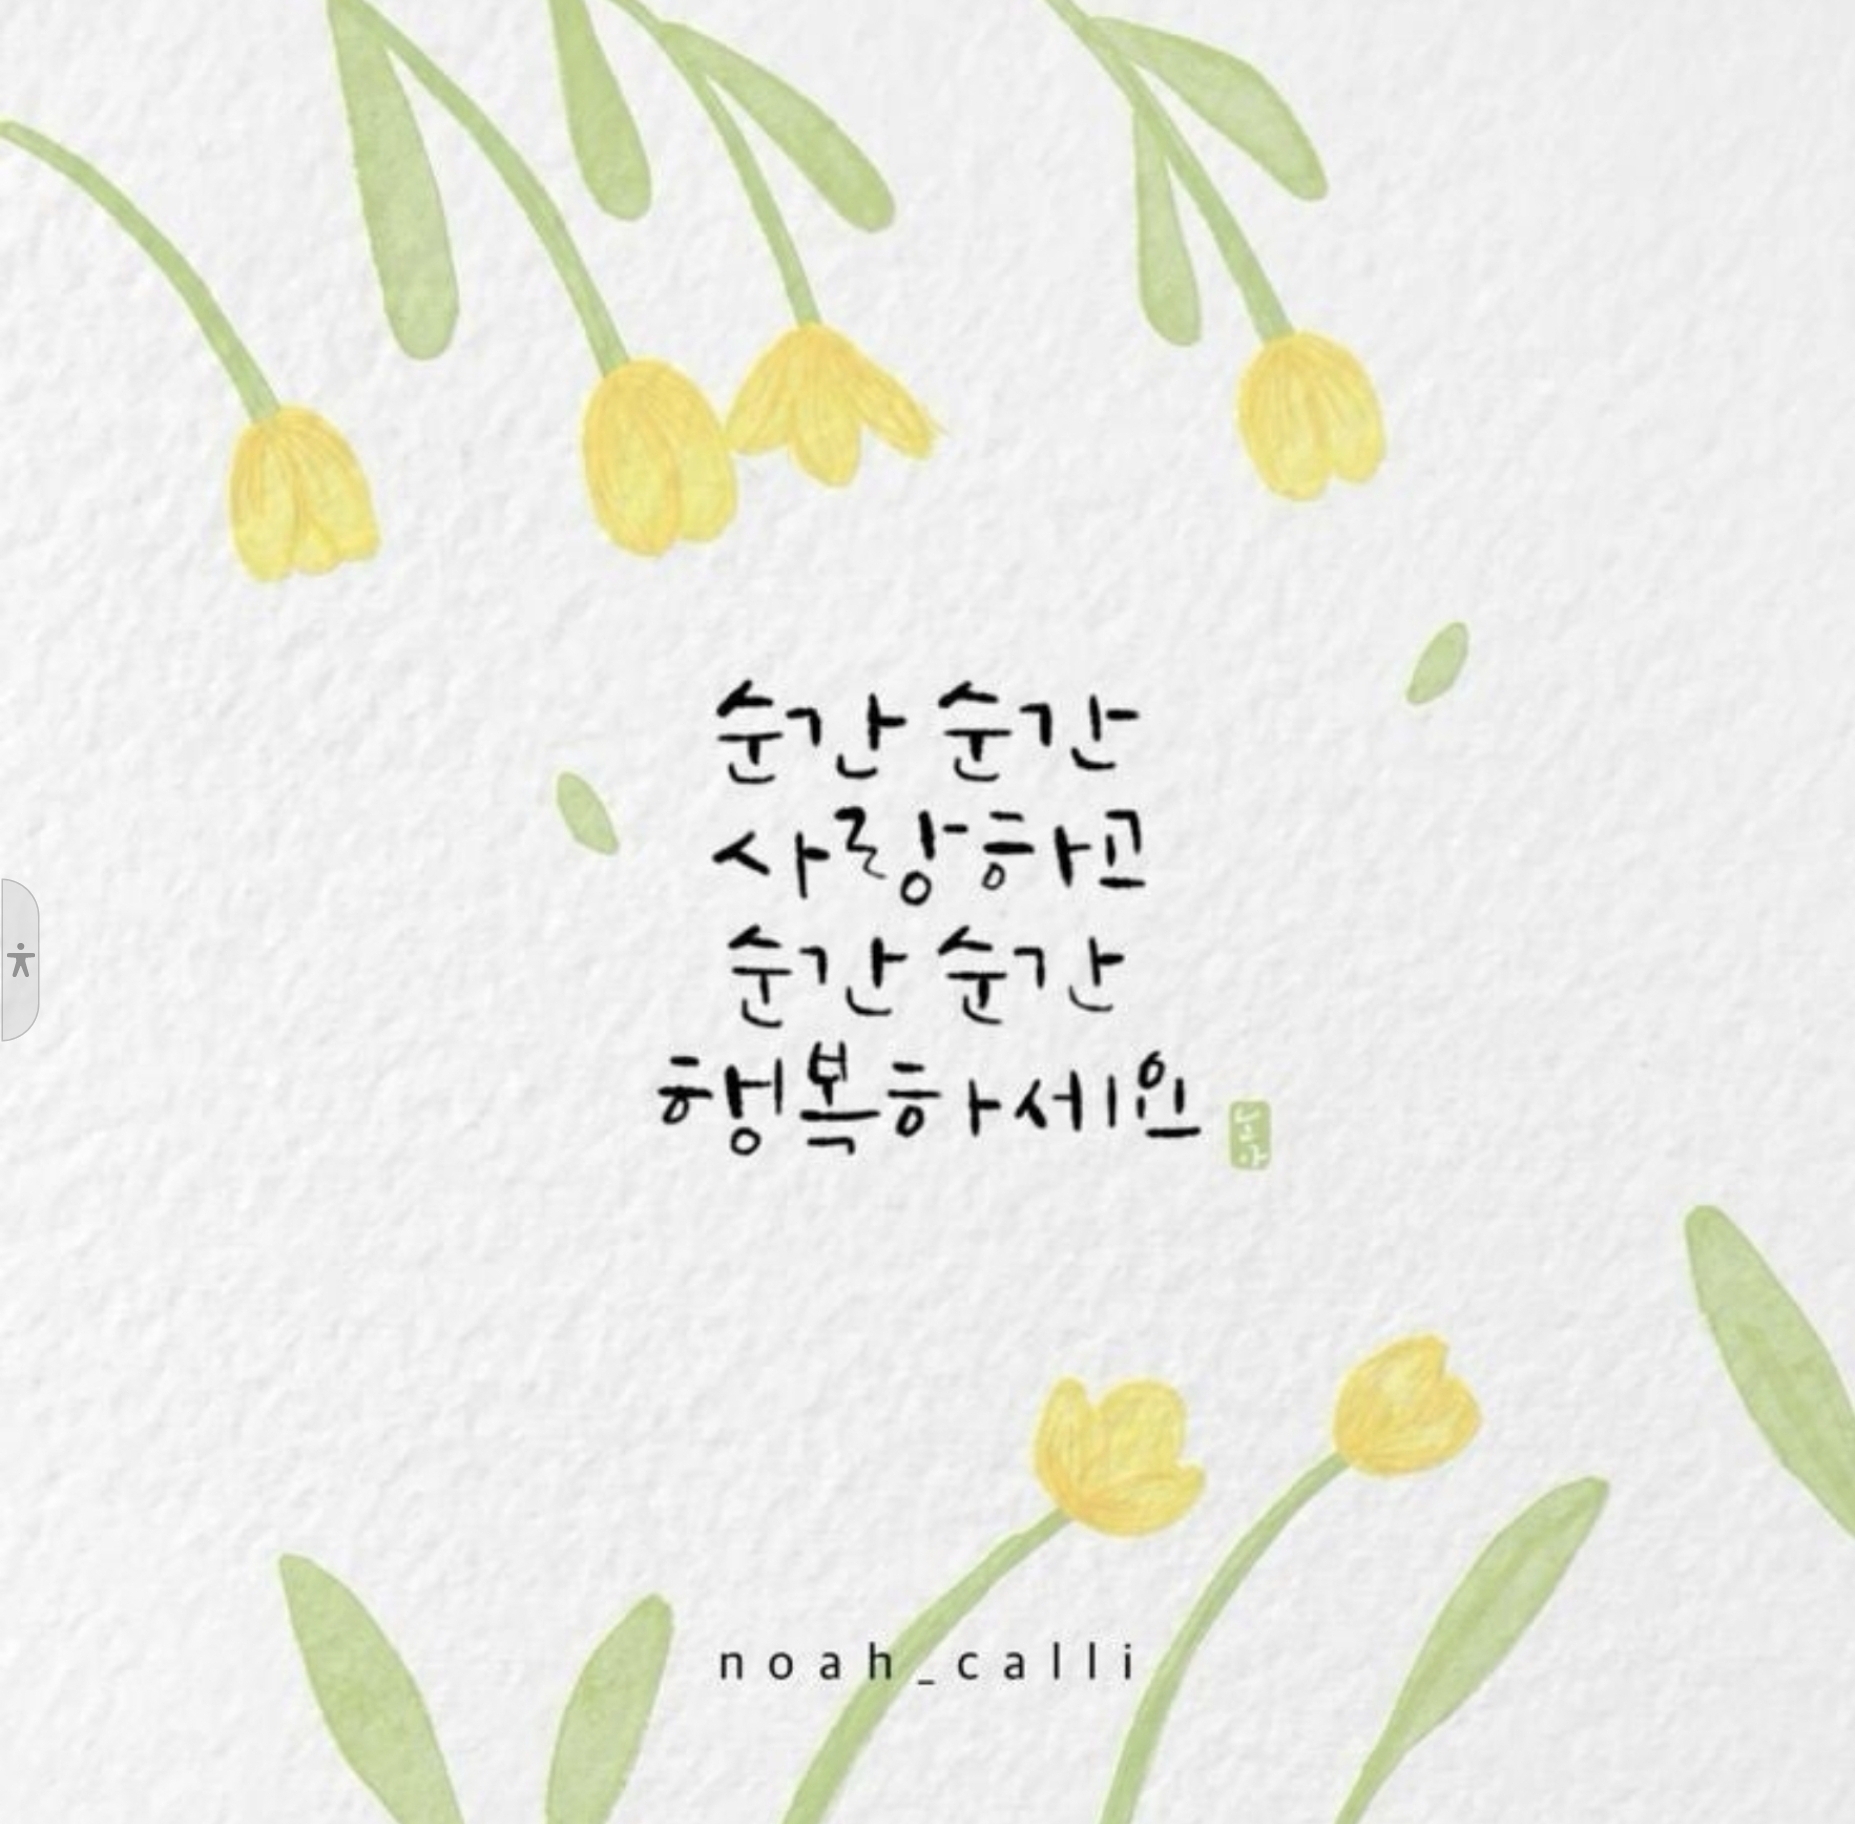 순간 순간
사랑하고
순간 순간
행복하세요
noah_calli